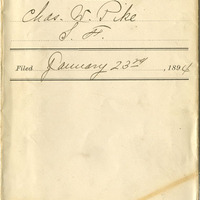 Chas. W. Pike
S. F.
Filed January 23rd, 1894